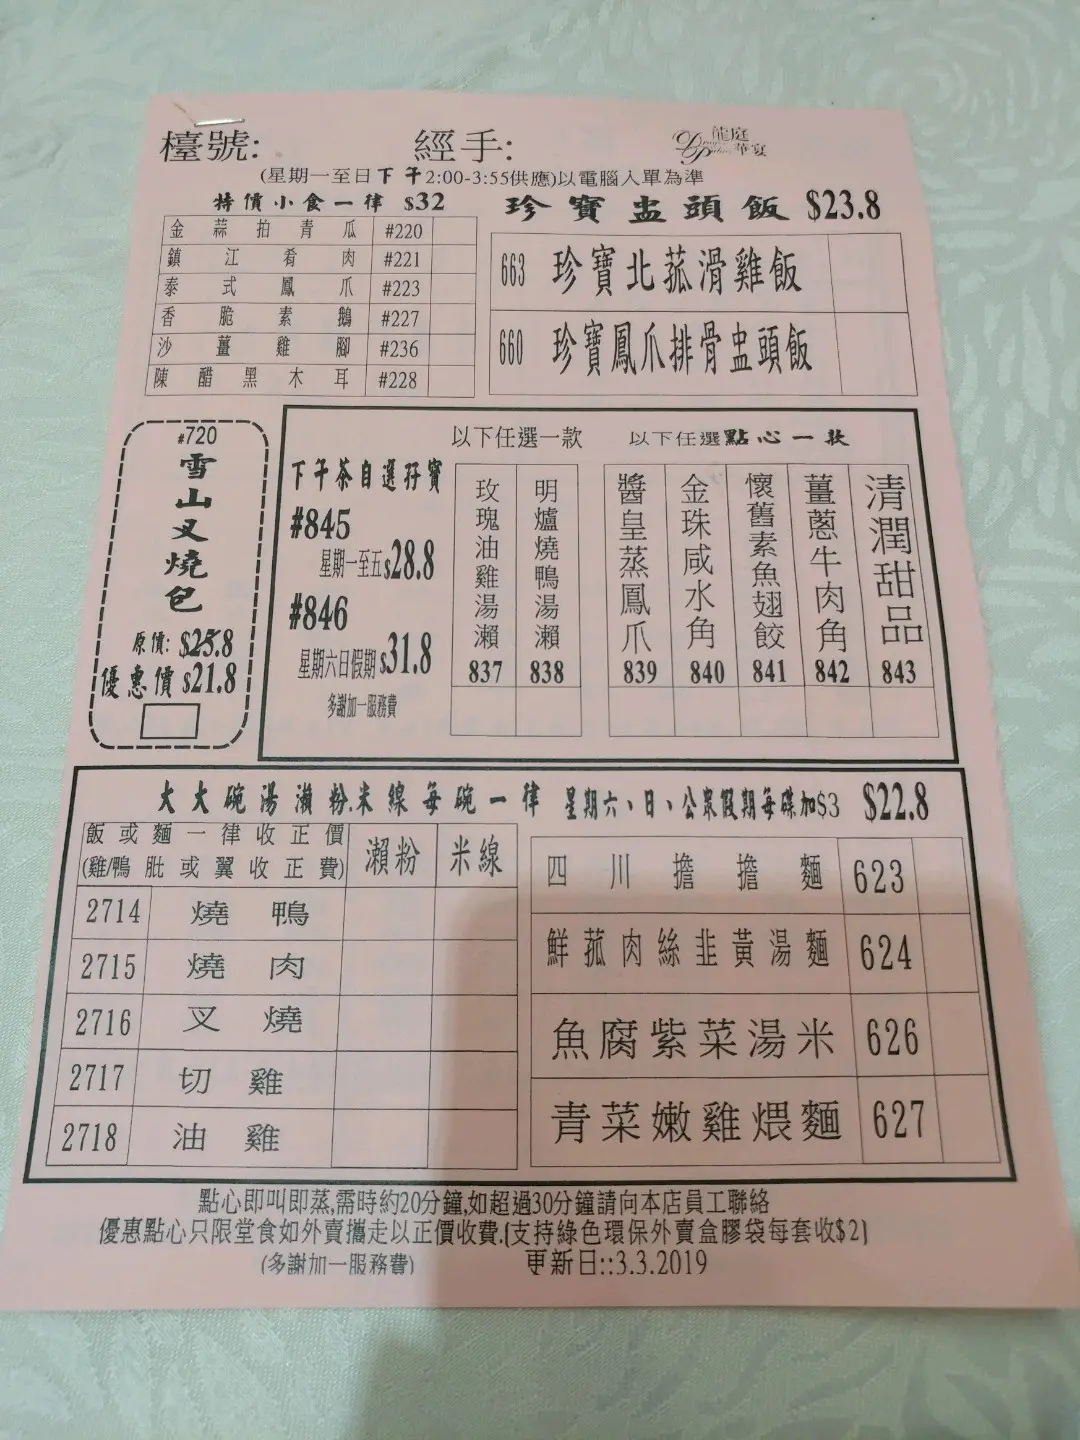 檯號:
經手:
龍庭
華宴
(星期一至日下午2:00-3:55供應)以電腦入單為準
特價小食一律 $32
金蒜拍青瓜 #220
鎮江肴肉 #221
泰式鳳爪 #223
香脆素鵝 #227
沙薑雞腳 #236
陳醋黑木耳 #228
珍寶盅頭飯 $23.8
663 珍寶北菰滑雞飯
660 珍寶鳳爪排骨盅頭飯
#720
雪山叉燒包
原價: $25.8
優惠價 $21.8
下午茶自選孖寶
#845
星期一至五$28.8
#846
星期六日假期$31.8
多謝加一服務費
以下任選一款
玫瑰油雞湯瀨 837
明爐燒鴨湯瀨 838
以下任選點心一款
醬皇蒸鳳爪 839
金珠咸水角 840
懷舊素魚翅餃 841
薑蔥牛肉角 842
清潤甜品 843
大大碗湯瀨粉.米線每碗一律 星期六、日、公眾假期每碟加$3 $22.8
飯或麵一律收正價
(雞/鴨肶或翼收正費)
瀨粉 米線
2714 燒鴨
2715 燒肉
2716 叉燒
2717 切雞
2718 油雞
四川擔擔麵 623
鮮菰肉絲韭黃湯麵 624
魚腐紫菜湯米 626
青菜嫩雞煨麵 627
點心即叫即蒸,需時約20分鐘,如超過30分鐘請向本店員工聯絡
優惠點心只限堂食如外賣攜走以正價收費.(支持綠色環保外賣盒膠袋每套收$2)
(多謝加一服務費) 更新日::3.3.2019